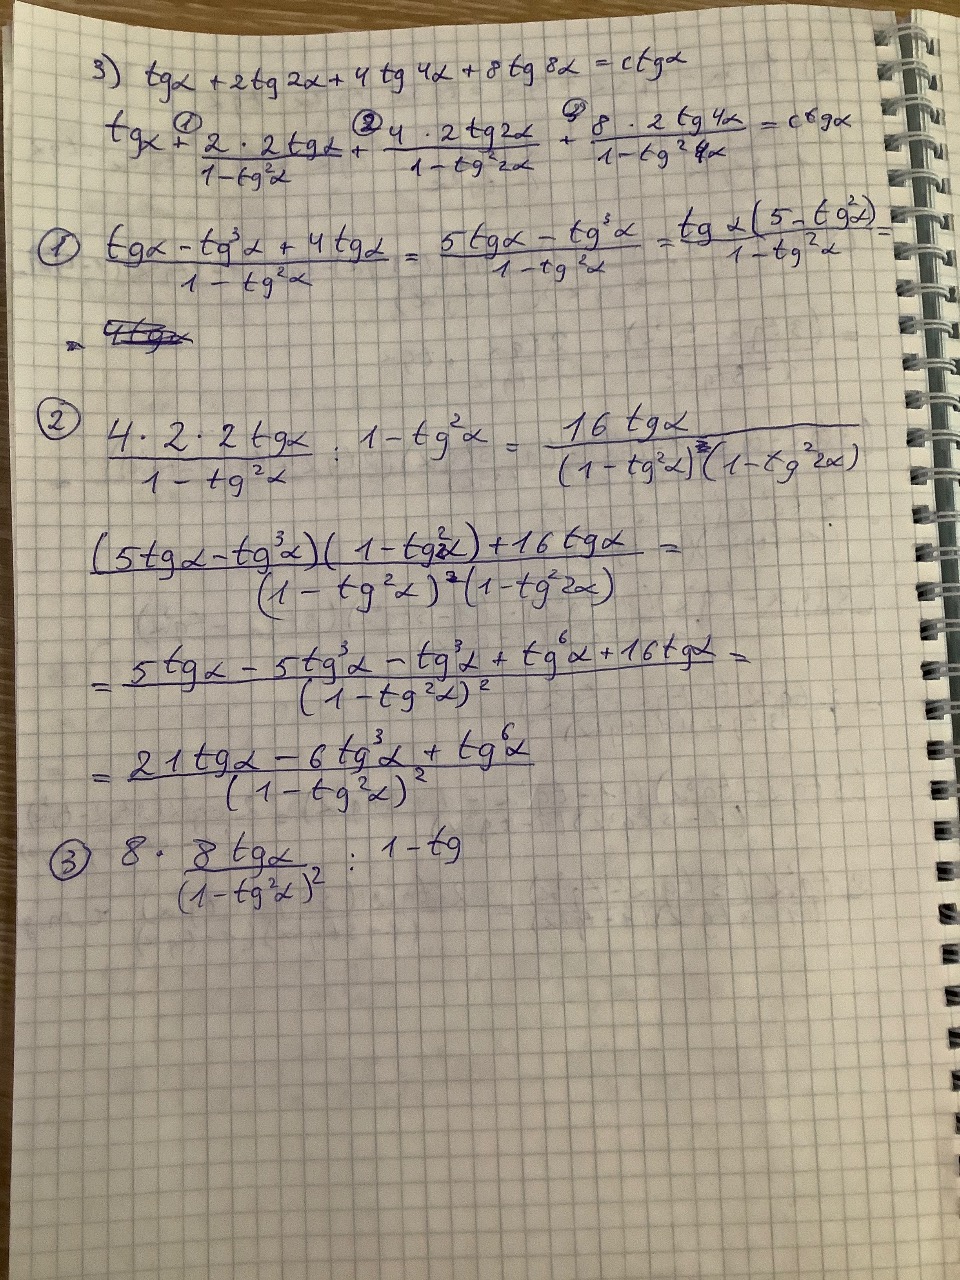 3) tgα + 2tg2α + 4tg4α + 8tg8α = ctgα
tgα + ① (2 · 2tgα)/(1-tg²α) + ② (4 · 2tg2α)/(1-tg²2α) + (8 · 2tg4α)/(1-tg²4α) = ctgα
① (tgα - tg³α + 4tgα)/(1-tg²α) = (5tgα - tg³α)/(1-tg²α) = (tgα(5-tg²α))/(1-tg²α) =
=
② (4·2·2tgα)/(1-tg²α) : 1-tg²α = (16tgα)/((1-tg²α)(1-tg²2α))
((5tgα-tg³α)(1-tg²α)+16tgα)/((1-tg²α)(1-tg²2α)) =
= (5tgα - 5tg³α - tg³α + tg⁶α + 16tgα)/((1-tg²α)²) =
= (21tgα - 6tg³α + tg⁶α)/((1-tg²α)²)
③ 8 · (8tgα)/((1-tg²α)²) : 1-tg